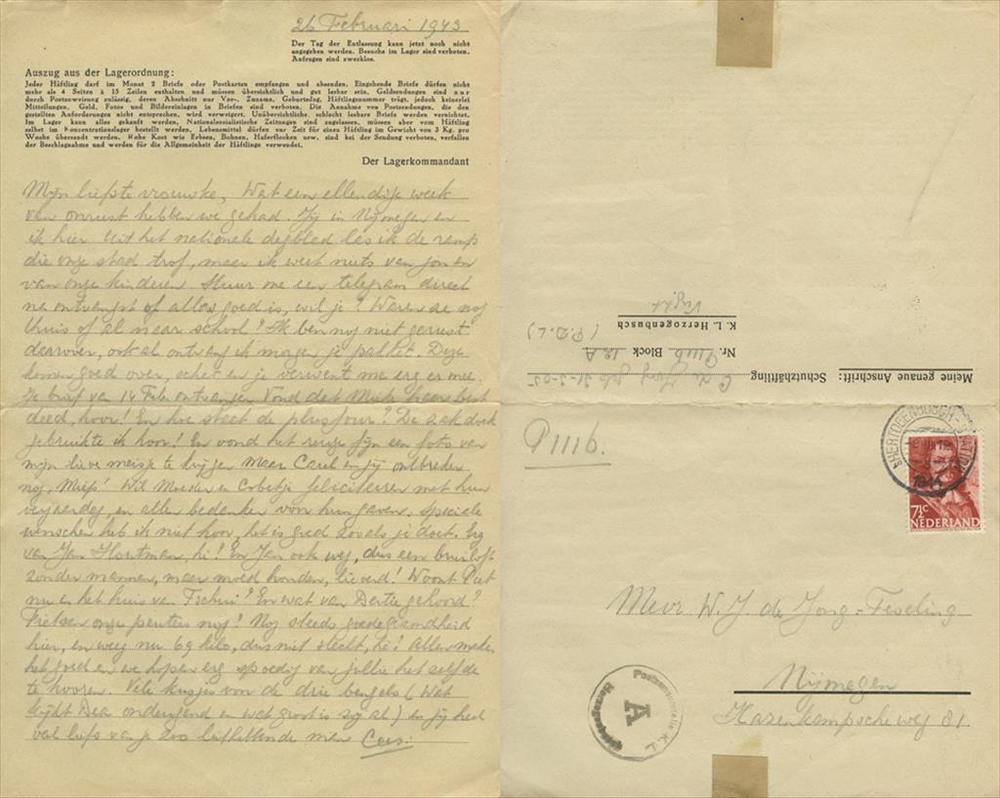 26 Februari 1943
Der Tag der Entlassung kann jetzt noch nicht
angegeben werden. Besuche im Lager sind verboten.
Anfragen sind zwecklos.
Auszug aus der Lagerordnung:
Jeder Häftling darf im Monat 2 Briefe oder Postkarten empfangen und absenden. Eingehende Briefe dürfen nicht
mehr als 4 Seiten à 15 Zeilen enthalten und müssen übersichtlich und gut lesbar sein. Geldsendungen sind nur
durch Postanweisung zulässig, deren Abschnitt nur Vor-, Zuname, Geburtstag, Häftlingsnummer trägt, jedoch keinerlei
Mitteilungen. Geld, Fotos und Bildereinlagen in Briefen sind verboten. Die Annahme von Postsendungen, die den
gestellten Anforderungen nicht entsprechen, wird verweigert. Unübersichtliche, schlecht lesbare Briefe werden vernichtet.
Im Lager kann alles gekauft werden. Nationalsozialistische Zeitungen sind zugelassen, müssen aber vom Häftling
selbst im Konzentrationslager bestellt werden. Lebensmittel dürfen zur Zeit für einen Häftling im Gewicht von 3 Kg. pro
Woche übersandt werden. Rohe Kost wie Erbsen, Bohnen, Haferflocken usw. sind bei der Sendung verboten, verfallen
der Beschlagnahme und werden für die Allgemeinheit der Häftlinge verwendet.
Der Lagerkommandant
Mijn liefste vrouwke, Wat een ellendige week
van onrust hebben we gehad. Jij in Nijmegen en
ik hier. Uit het nationale dagblad las ik de ramp
die onze stad trof, maar ik weet niets van jou en
van onze kinderen. Stuur me een telegram direct
na ontvangst of alles goed is, wil je? Waren ze nog
thuis of al naar school? Ik ben nog niet gerust
daarover, ook al ontvang ik morgen je pakket. Deze
komen goed over, echt en je verwent me erg er mee.
Je brief van 14 Febr ontvangen. Vond dat Miek haar best
deed hoor! En hoe staat de plusfour? De zakdoek
gebruikte ik hoor! En vond het reuze fijn een foto van
mijn lieve meisje te krijgen. Maar Carel en jij ontbreken
nog, Miep! Wil Moeder en Cobetje feliciteren met hun
verjaardag, en allen bedanken voor hun gaven. Speciale
wenschen heb ik niet hoor, het is goed zoals je doet. Erg
van Jan Hartman, hè! En Jan ook weg, dus een bruiloft
zonder mannen, maar moed houden, lieverd! Woont Piet
nu in het huis van? En wat van gehoord?
Fietsen onze peuters nog? Nog steeds goede gezondheid
hier, en weeg nu 69 kilo, dus niet slecht, hè! Allen maken
het goed en we hopen erg spoedig van jullie het zelfde
te hooren. Vele kusjes voor de drie bengels (Wat
kijkt Dea ondeugend en wat groot is zij al) en jij heel
veel liefs van je zoo liefhebbende man Cees.
Meine genaue Anschrift:
Schutzhäftling C de Jong geb 31-3-05
Nr. P111b Block 12 A
K. L. Herzogenbusch (P.D.L)
Vught
P111b.
'S HERTOGENBOSCH
7½ C
NEDERLAND
Mevr W. J. de Jong-Teseling
Nijmegen
Hazenkampscheweg 81.
Postzensurstelle K. L.
Herzogenbusch
A